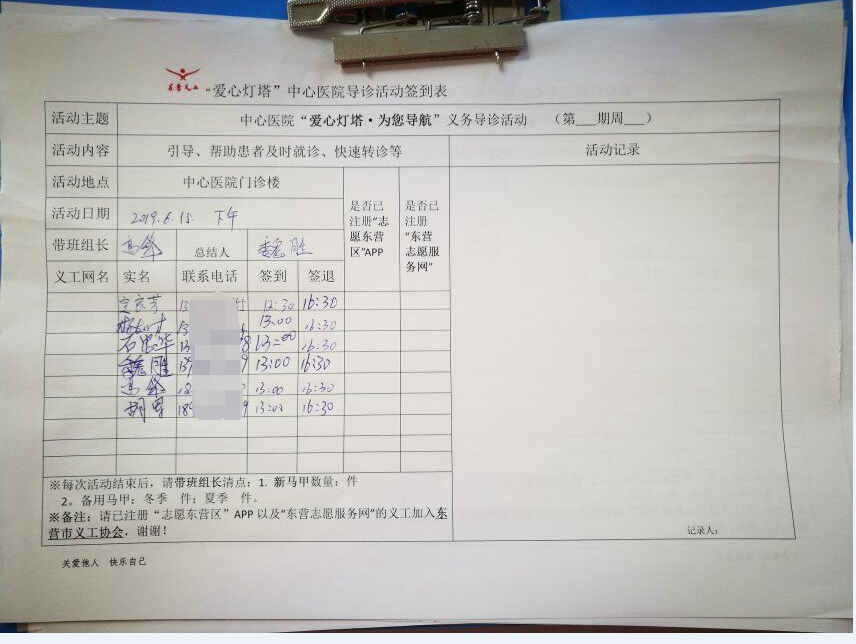 东营义工
“爱心灯塔”中心医院导诊活动签到表
活动主题 中心医院“爱心灯塔·为您导航”义务导诊活动 （第___期周___）
活动内容 引导、帮助患者及时就诊、快速转诊等 活动记录
活动地点 中心医院门诊楼 是否已注册“志愿东营区”APP 是否已注册“东营志愿服务网”
活动日期 2019.6.15 下午
带班组长 总结人
义工网名 实名 联系电话 签到 签退
12:30 16:30
13:00 16:30
石忠华 13:00 16:30
13:00 16:30
13:00 16:30
13:00 16:30
※每次活动结束后，请带班组长清点：1. 新马甲数量： 件
2。备用马甲：冬季 件；夏季 件。
※备注：请已注册“志愿东营区”APP以及“东营志愿服务网”的义工加入东
营市义工协会，谢谢！
记录人：
关爱他人 快乐自己